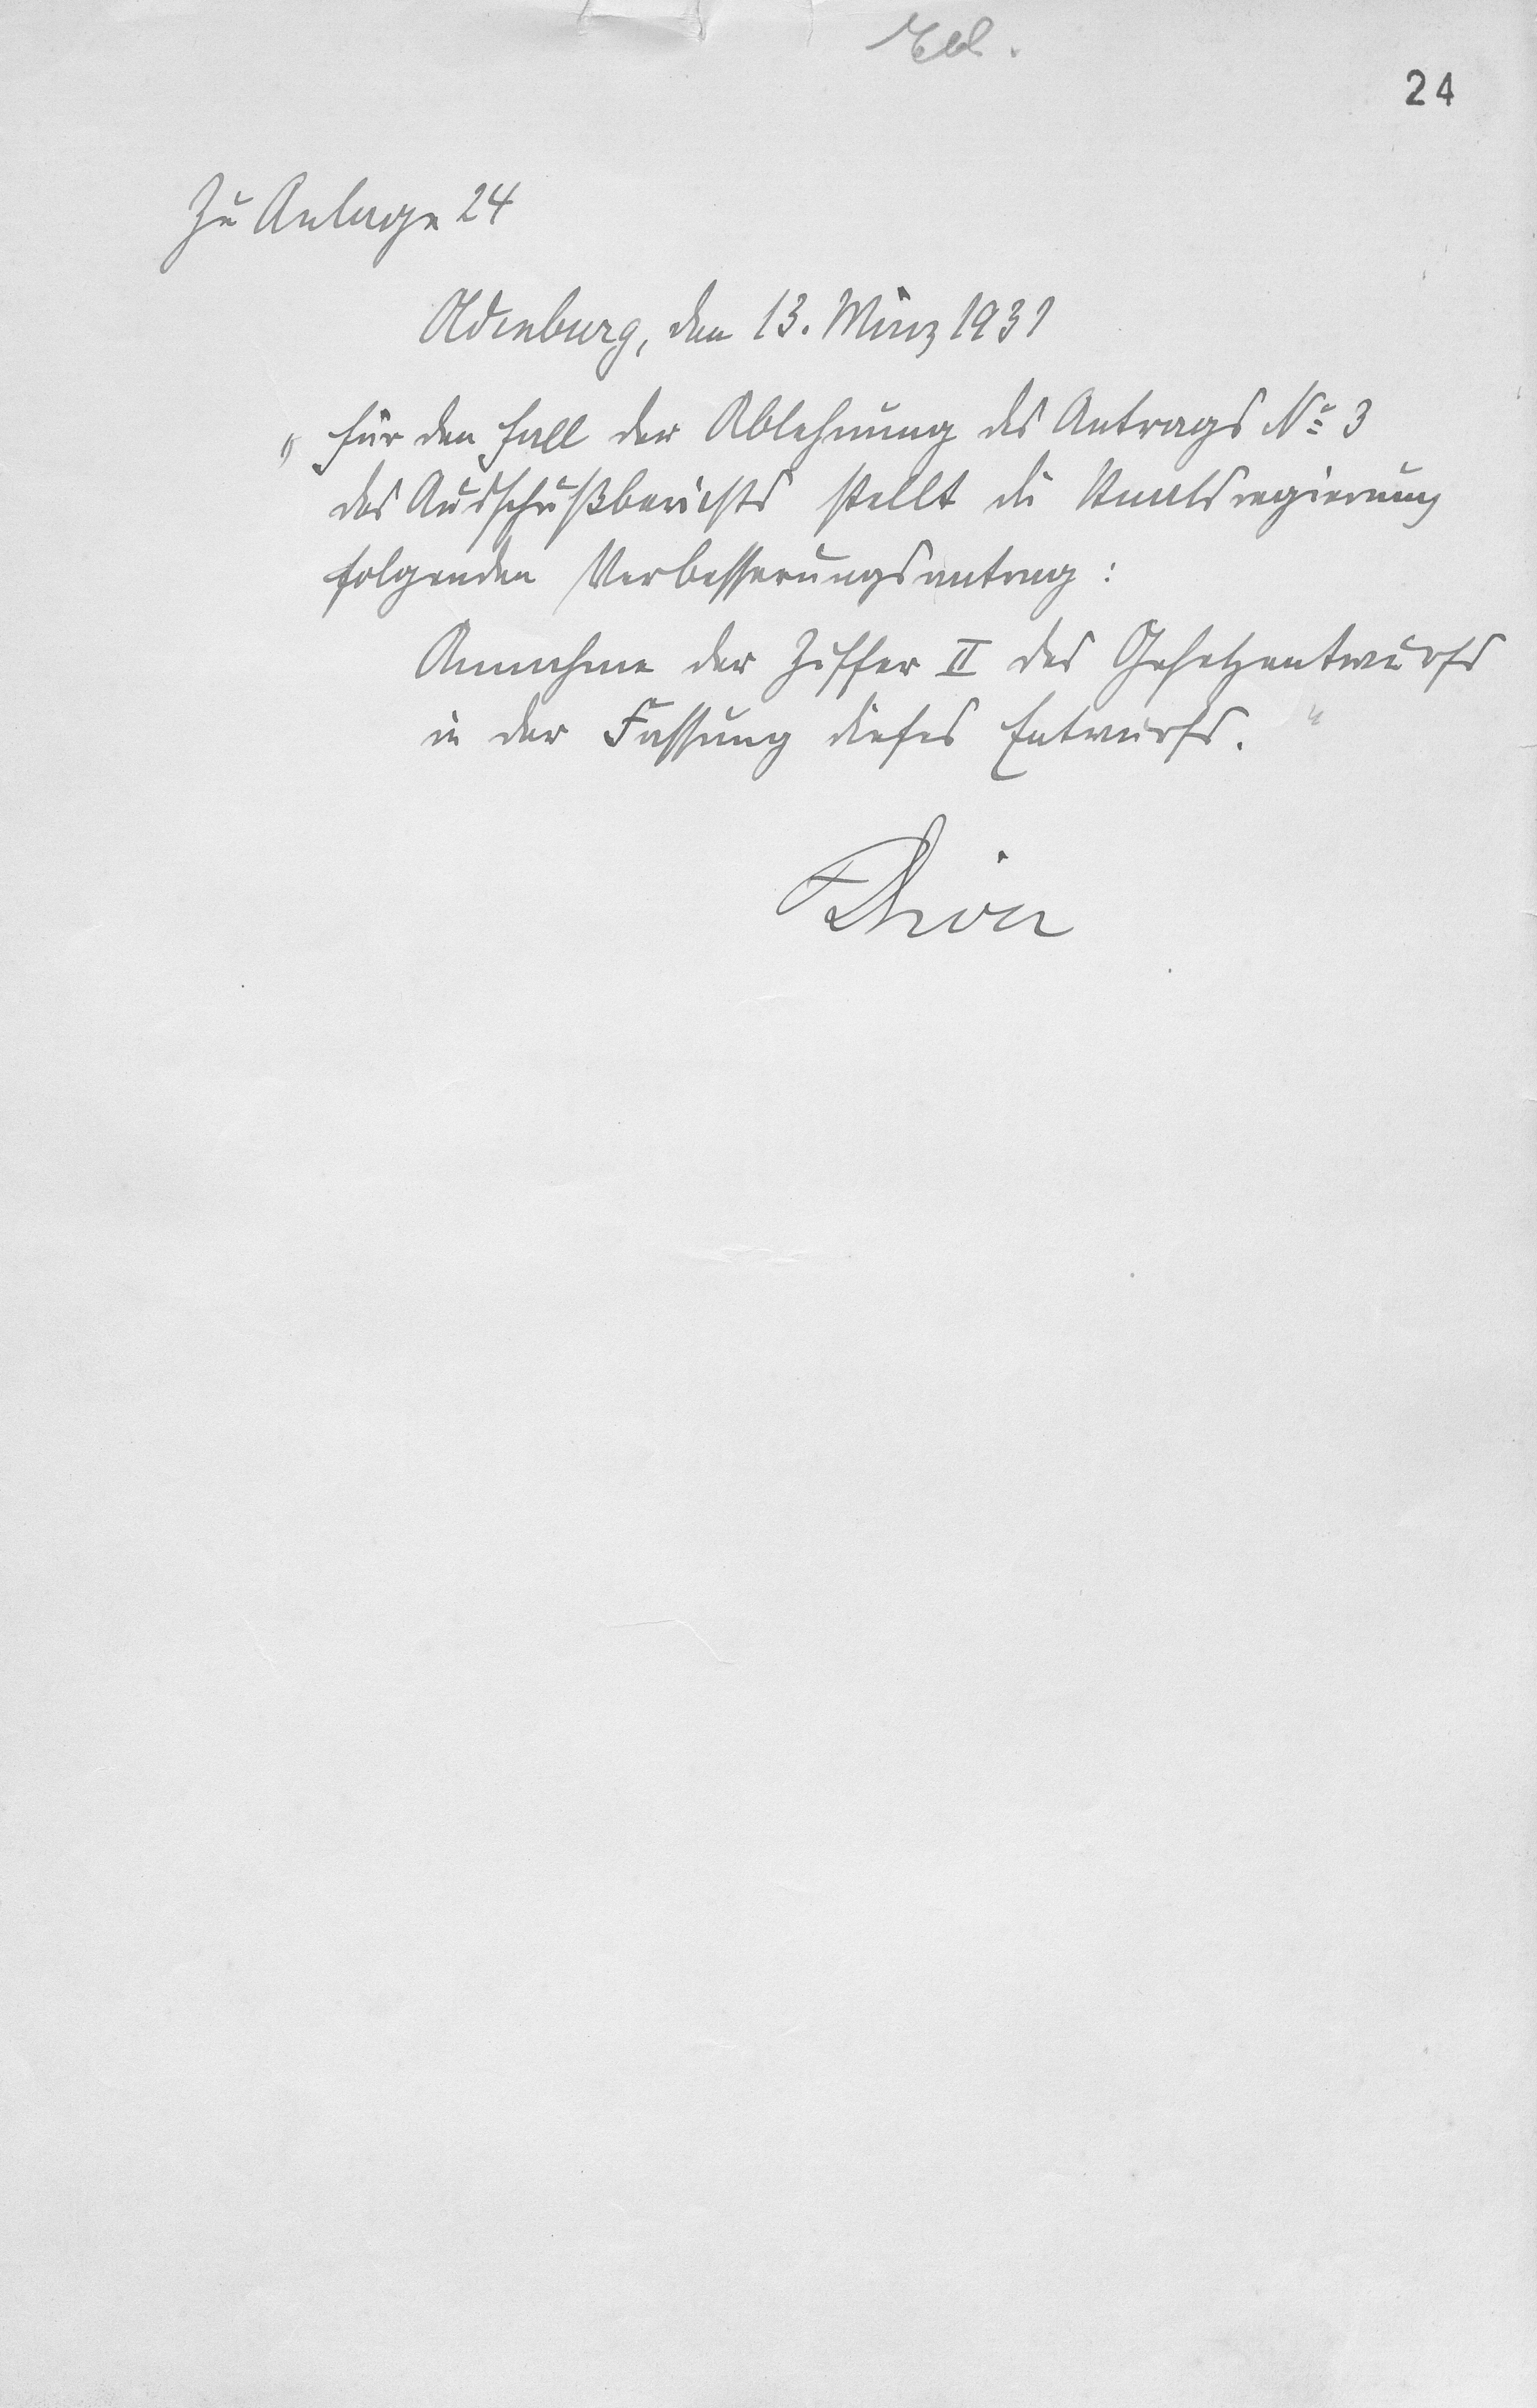 Erl.
24
Zu Anlage 24
Oldenburg, den 13. März 1931
„Für den Fall der Ablehnung des Antrags No 3
des Ausschußberichts stellt die Staatsregierung
folgenden Verbesserungsantrag:
Annahme der Ziffer II des Gesetzentwurfs
in der Fassung dieses Entwurfs.“